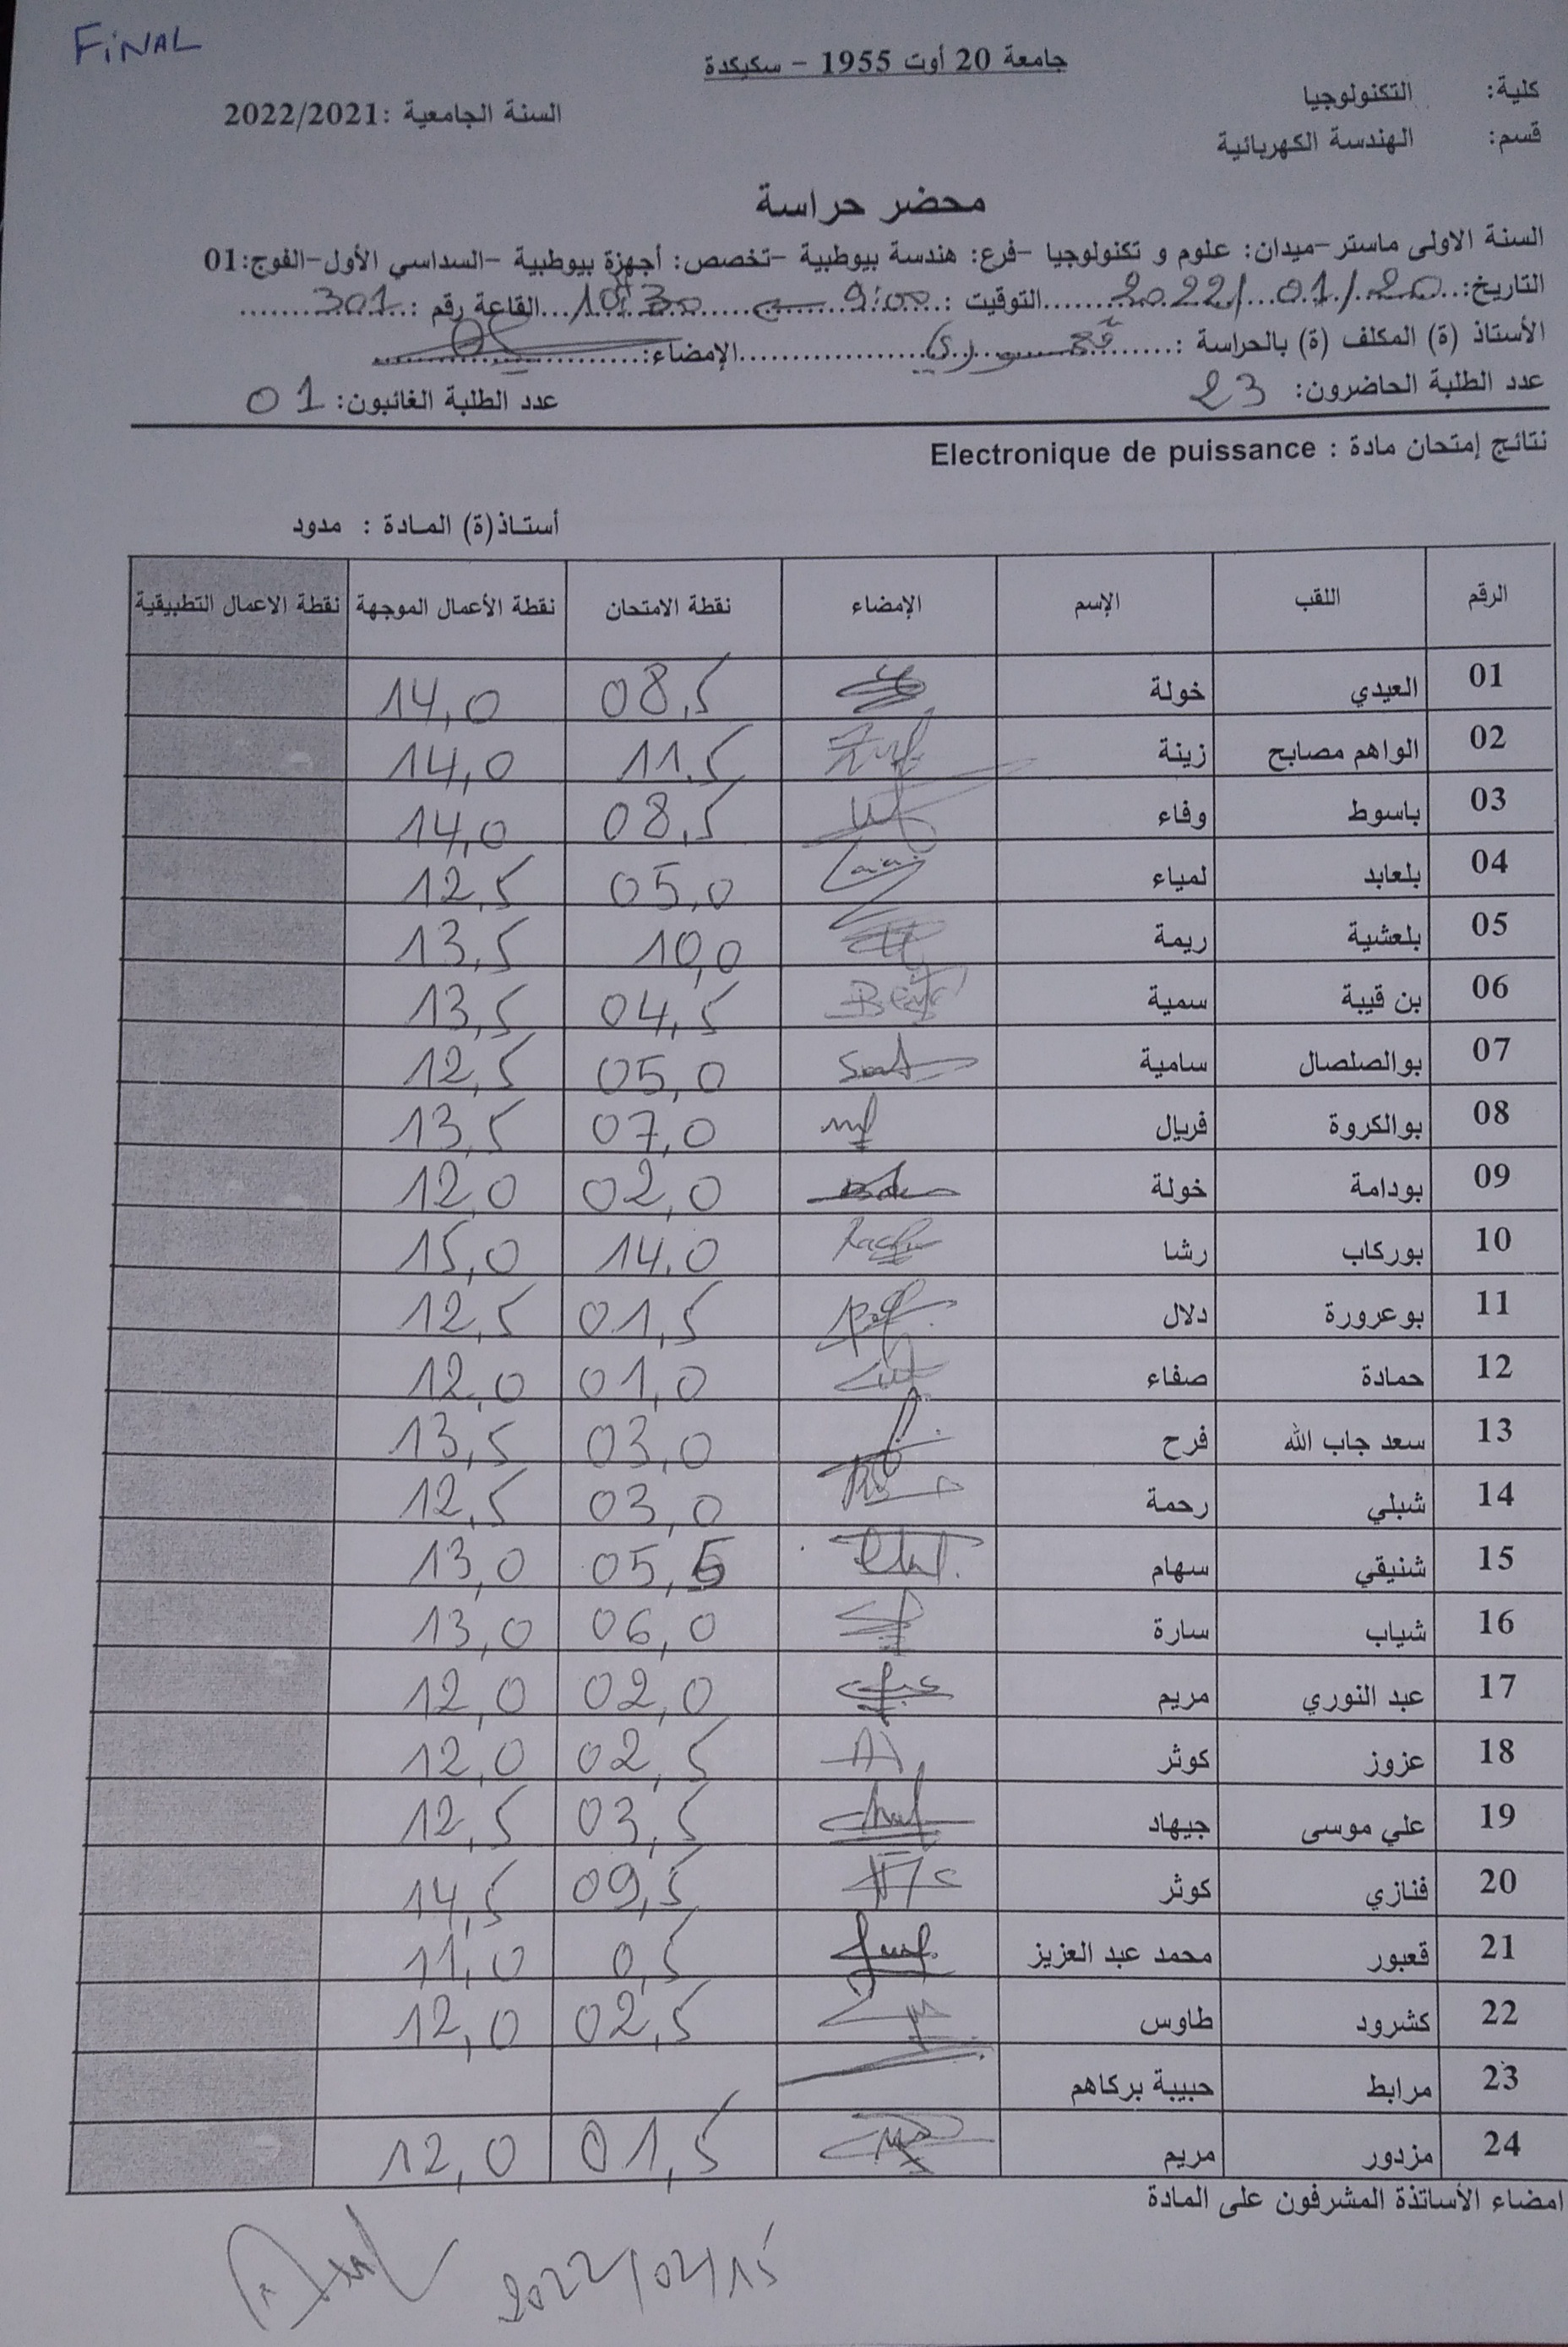 FiNAL
جامعة 20 أوت 1955 – سكيكدة
كلية: التكنولوجيا
السنة الجامعية :2022/2021
قسم: الهندسة الكهربائية
محضر حراسة
السنة الاولى ماستر–ميدان: علوم و تكنولوجيا –فرع: هندسة بيوطبية –تخصص: أجهزة بيوطبية –السداسي الأول–الفوج:01
التاريخ: 2022/01/20 التوقيت : 9:00 10h30 القاعة رقم : 301
الأستاذ (ة) المكلف (ة) بالحراسة : الإمضاء:
عدد الطلبة الحاضرون: 23 عدد الطلبة الغائبون: 01
نتائج إمتحان مادة : Electronique de puissance
أستاذ(ة) المادة : مدود
الرقم اللقب الإسم الإمضاء نقطة الامتحان نقطة الأعمال الموجهة نقطة الاعمال التطبيقية
01 العيدي خولة 08,5 14,0
02 الواهم مصابح زينة 11,5 14,0
03 باسوط وفاء 08,5 14,0
04 بلعابد لمياء 05,0 12,5
05 بلعشية ريمة 10,0 13,5
06 بن قيبة سمية 04,5 13,5
07 بوالصلصال سامية 05,0 12,5
08 بوالكروة فريال 07,0 13,5
09 بودامة خولة 02,0 12,0
10 بوركاب رشا 14,0 15,0
11 بوعرورة دلال 01,5 12,5
12 حمادة صفاء 01,0 12,0
13 سعد جاب الله فرح 03,0 13,5
14 شبلي رحمة 03,0 12,5
15 شنيقي سهام 05,5 13,0
16 شياب سارة 06,0 13,0
17 عبد النوري مريم 02,0 12,0
18 عزوز كوثر 02,5 12,0
19 علي موسى جيهاد 03,5 12,5
20 فنازي كوثر 09,5 14,5
21 قعبور محمد عبد العزيز 0,5 11,0
22 كشرود طاوس 02,5 12,0
23 مرابط حبيبة بركاهم
24 مزدور مريم 01,5 12,0
امضاء الأساتذة المشرفون على المادة
2022/02/15